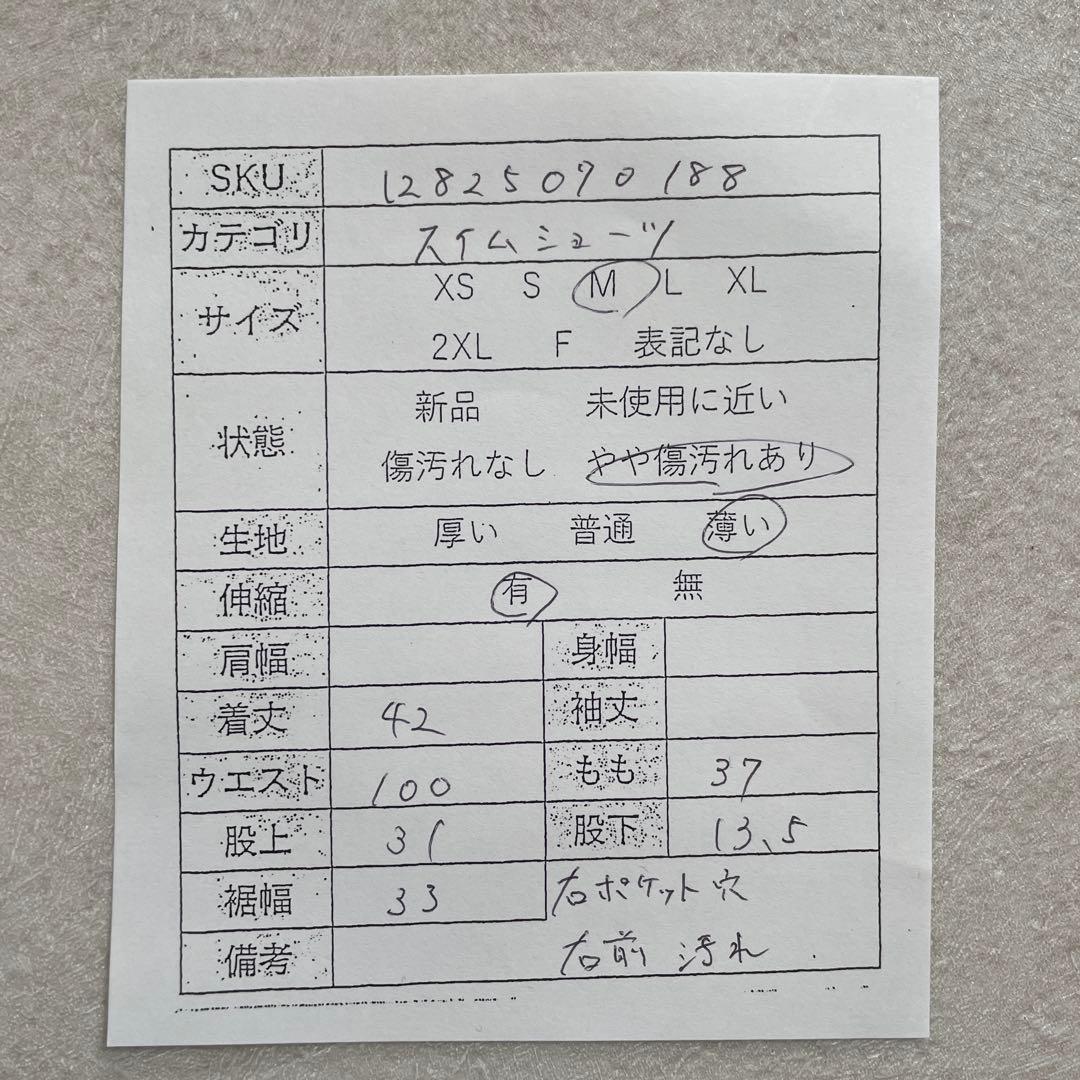 SKU 12825070188
カテゴリ スイムショーツ
サイズ XS S M L XL
2XL F 表記なし
状態 新品 未使用に近い
傷汚れなし やや傷汚れあり
生地 厚い 普通 薄い
伸縮 有 無
肩幅 身幅
着丈 42 袖丈
ウエスト 100 もも 37
股上 31 股下 13.5
裾幅 33 右ポケット穴
備考 右前 汚れ